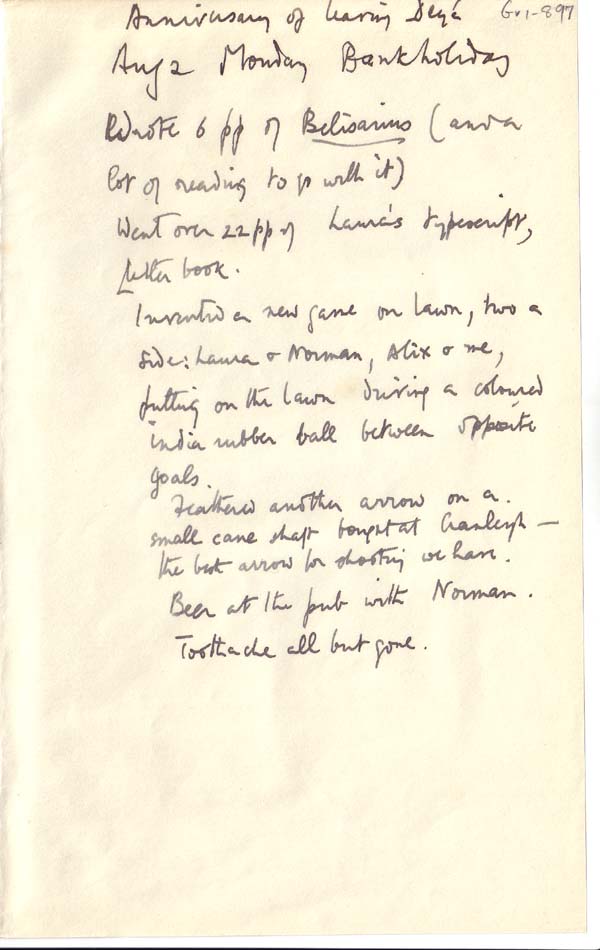 Anniversary of leaving Deyá
Gr1-897
Aug 2 Monday Bankholiday
Rewrote 6 pp of Belisarius (and a
lot of reading to go with it)
Went over 22 pp of Laura's typescript,
letter book.
Invented a new game on lawn, two a
side: Laura & Norman, Alix & me,
putting on the lawn driving a coloured
india rubber ball between opposite
goals.
Feathered another arrow on a
small cane shaft bought at Cranleigh —
the best arrow for shooting we have.
Beer at the pub with Norman.
Toothache all but gone.